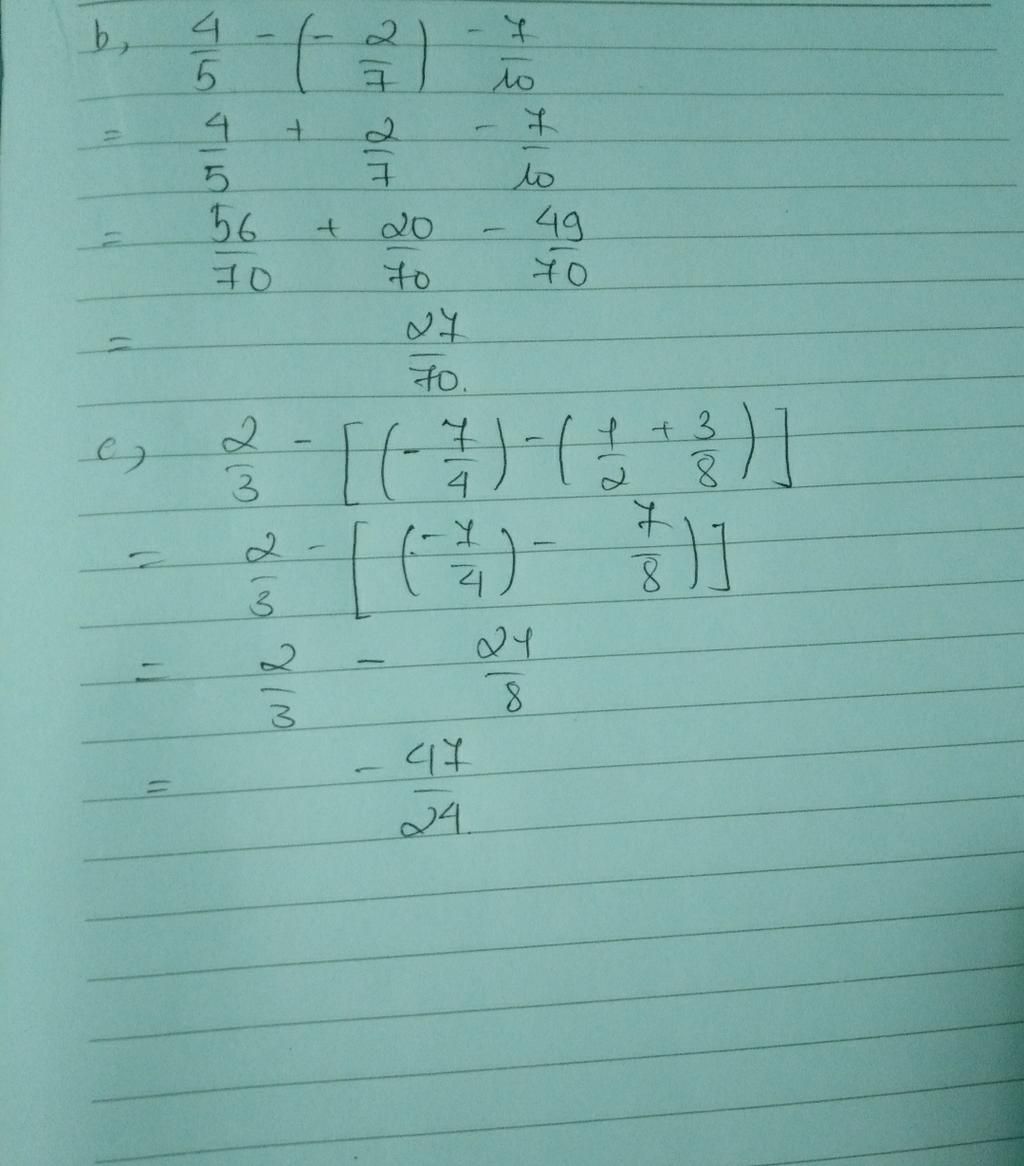 b, 4/5 - (- 2/7) - 7/10
= 4/5 + 2/7 - 7/10
= 56/70 + 20/70 - 49/70
= 27/70.
c, 2/3 - [(- 7/4) - (1/2 + 3/8)]
= 2/3 - [(-7/4) - 7/8)]
= 2/3 - 21/8
= - 47/24.